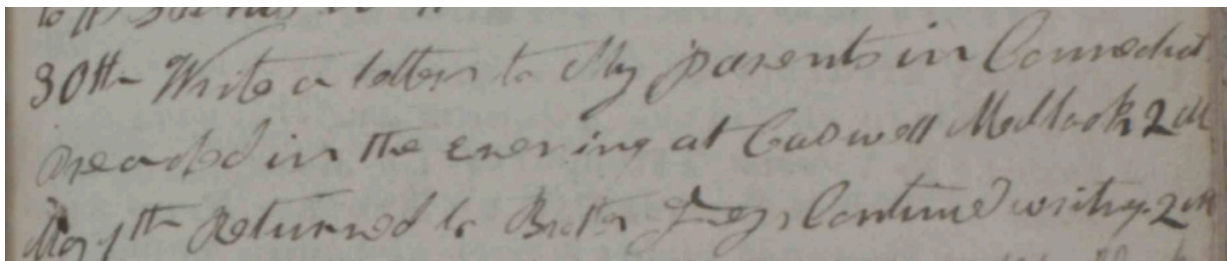 30th Write a letter to My parents in Connecticut
preached in the evening at Caswell Medlock 2 m
May 1th Returned to Continued writing. 2 m